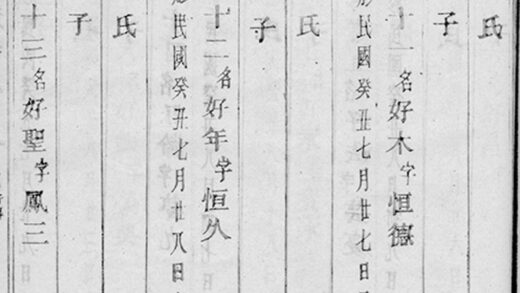 氏
十一名好木字恒德
民國癸丑七月廿七日
氏
子
十二名好年字恒久
民國癸丑七月廿八日
氏
子
十三名好聖字鳳三